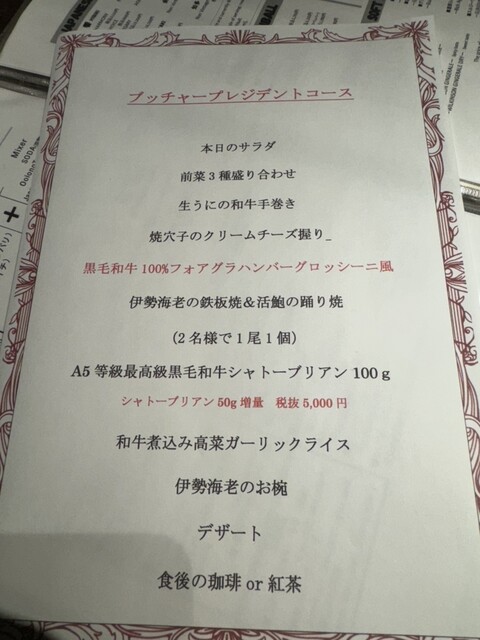 ブッチャープレジデントコース
本日のサラダ
前菜3種盛り合わせ
生うにの和牛手巻き
焼穴子のクリームチーズ握り_
黒毛和牛100%フォアグラハンバーグロッシーニ風
伊勢海老の鉄板焼＆活鮑の踊り焼
（2名様で1尾1個）
A5等級最高級黒毛和牛シャトーブリアン100ｇ
シャトーブリアン50g増量　税抜5,000円
和牛煮込み高菜ガーリックライス
伊勢海老のお椀
デザート
食後の珈琲 or 紅茶
Mixer